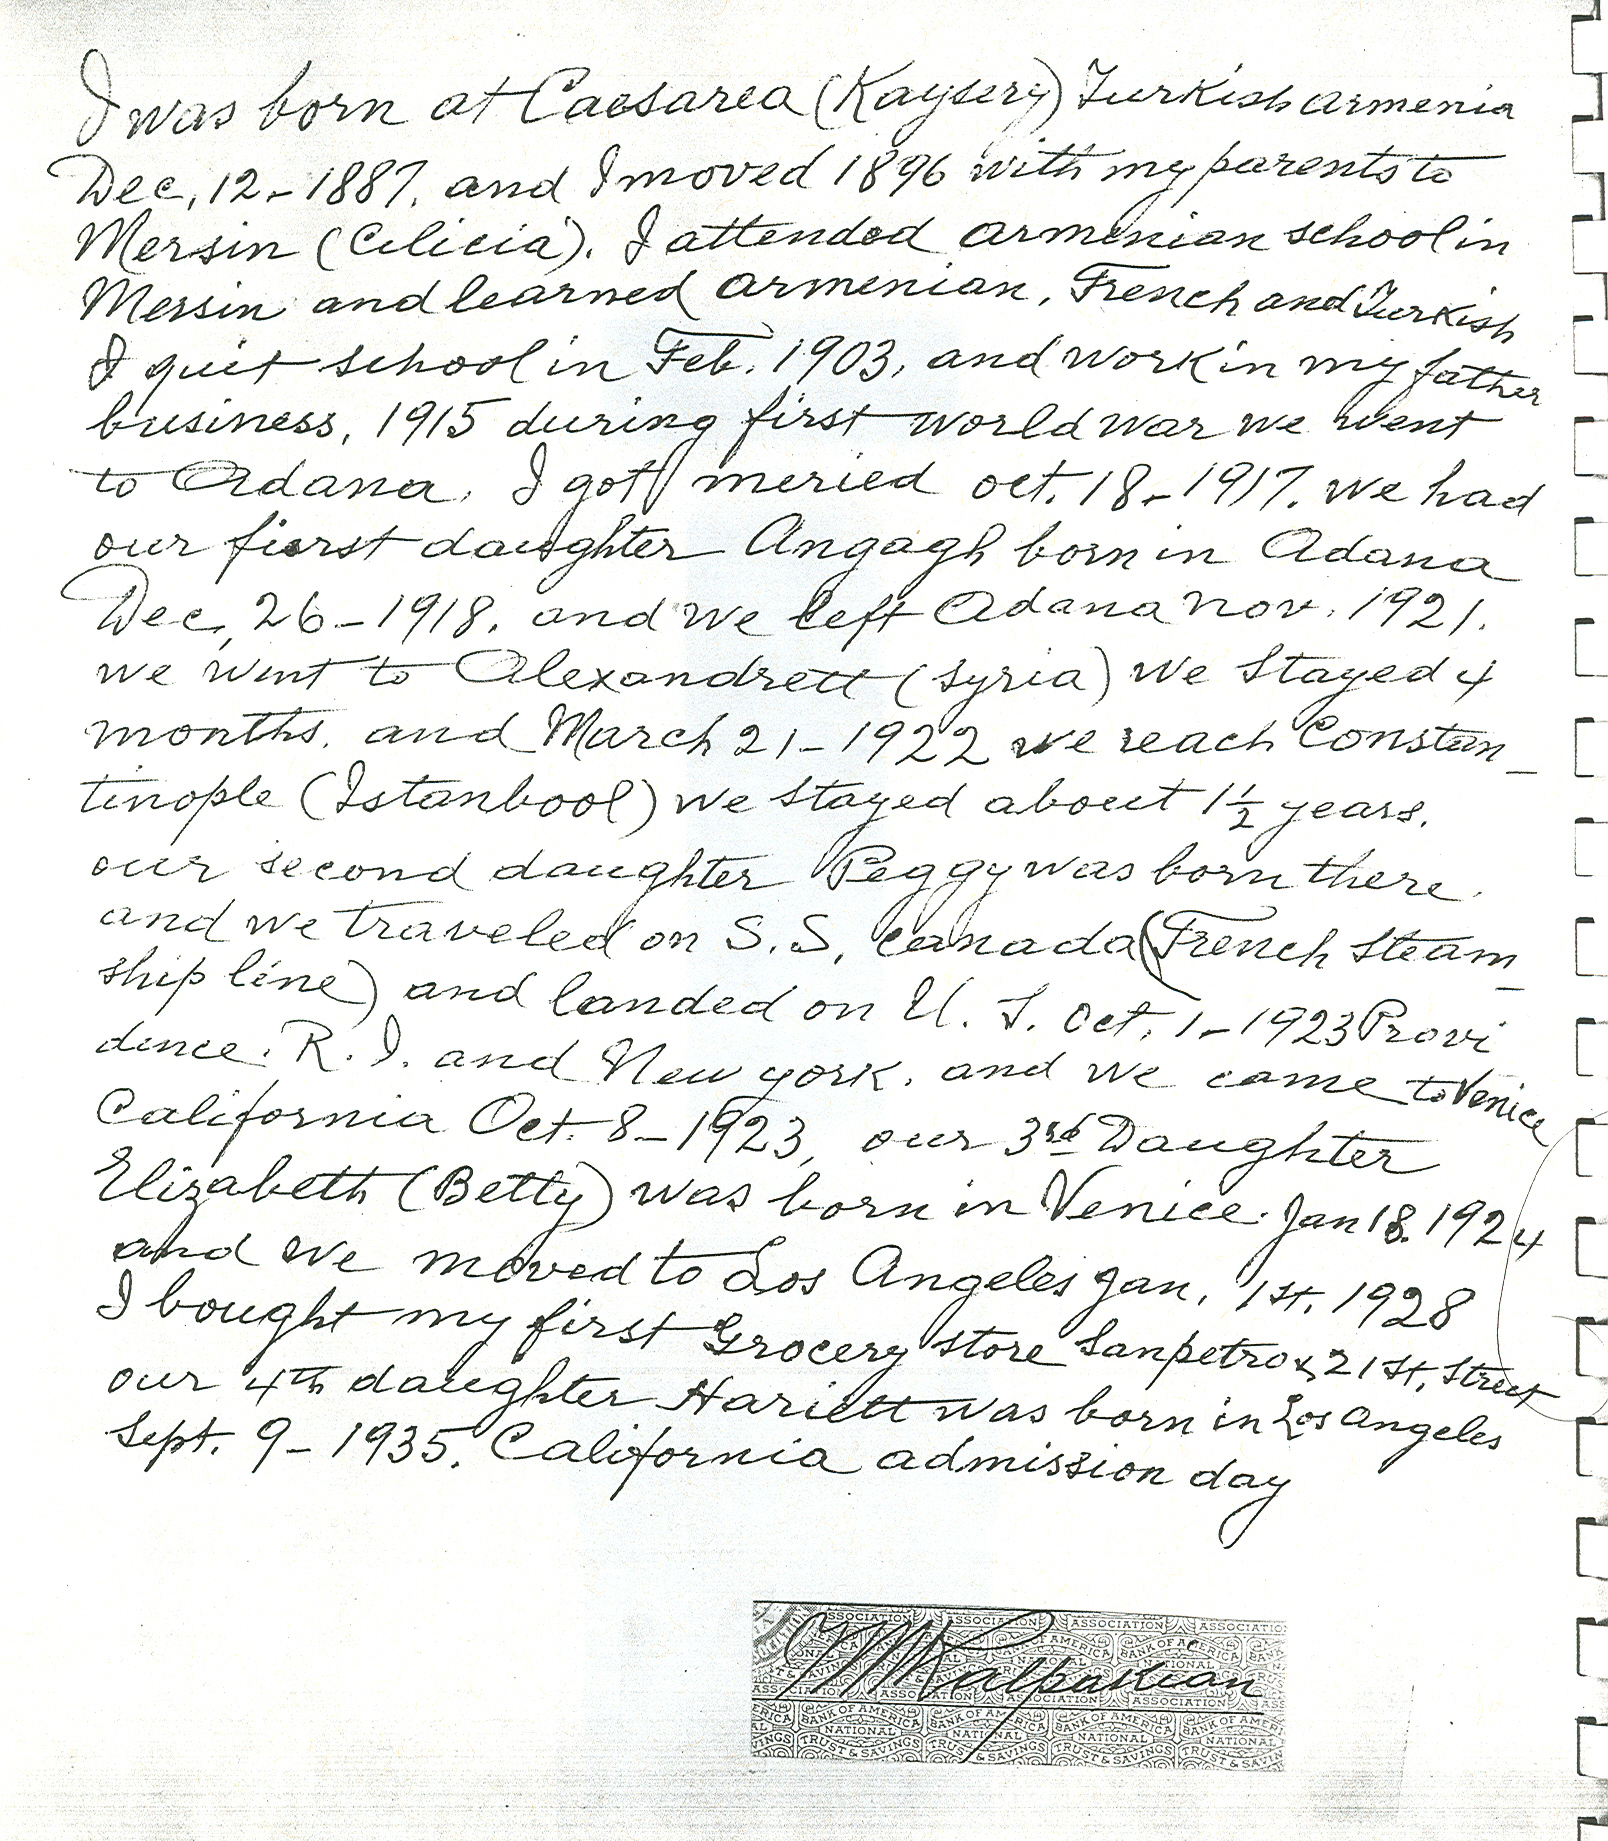 I was born at Caesarea (Kaysery) Turkish Armenia
Dec, 12 - 1887. and I moved 1896 with my parents to
Mersin (Cilicia). I attended Armenian school in
Mersin and learned Armenian, French and Turkish
I quit school in Feb. 1903, and work in my father
business, 1915 during first world war we went
to Adana. I got meried oct. 18 - 1917. we had
our fierst daughter Angagh born in Adana
Dec, 26 - 1918. and we left Adana Nov. 1921.
we went to Alexandrett (Syria) we stayed 4
months. and March 21 - 1922 we reach Constan_
tinople (Istanbool) we stayed about 1 1/2 years.
our second daughter Peggy was born there.
and we traveled on S.S, Canada (French Steam_
ship line) and landed on U. S. Oct. 1 - 1923 Provi
dence. R. I. and New york. and we came to Venice
California Oct. 8 - 1923, our 3rd Daughter
Elizabeth (Betty) was born in Venice. Jan 18. 1924
and we moved to Los Angeles Jan, 1st, 1928
I bought my first Grocery store Sanpetro & 21st, street
our 4th daughter Hariett was born in Los Angeles
Sept. 9 - 1935. California admission day
Kalpakian
ASSOCIATION ASSOCIATION ASSOCIATION ASSOCIATION
BANK OF AMERICA BANK OF AMERICA
NATIONAL NATIONAL NATIONAL
TRUST & SAVINGS TRUST & SAVINGS TRUST & SAVINGS